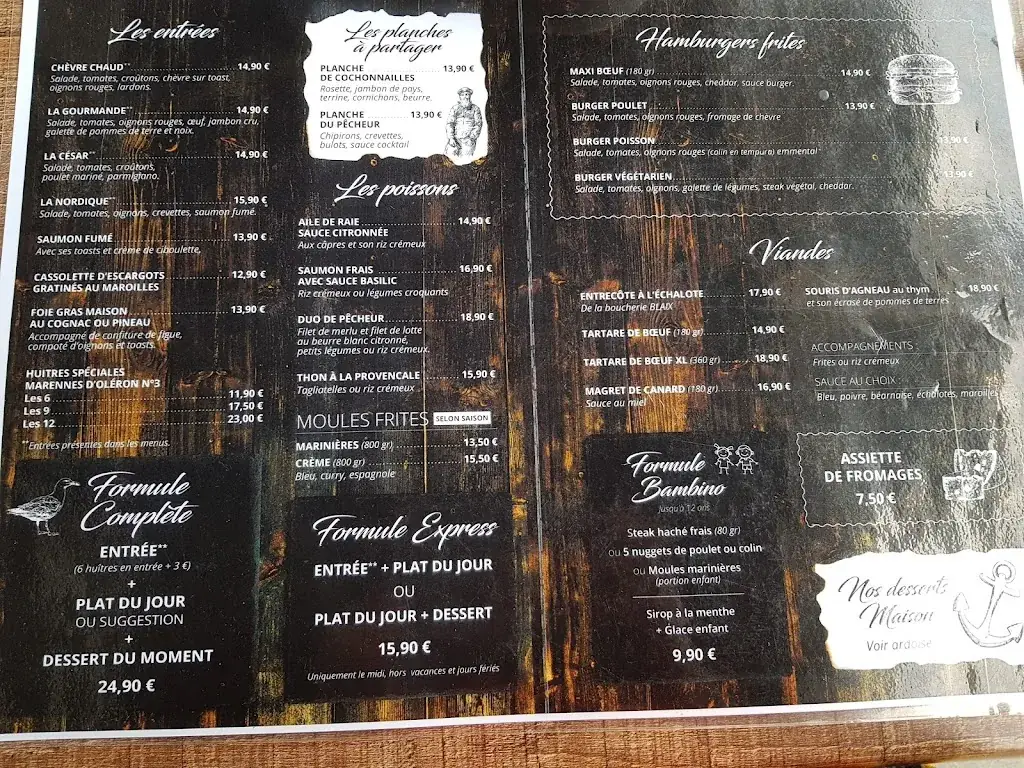 Les entrées
CHÈVRE CHAUD** 14,90 €
Salade, tomates, croûtons, chèvre sur toast,
oignons rouges, lardons.
LA GOURMANDE** 14,90 €
Salade, tomates, oignons rouges, œuf, jambon cru,
galette de pommes de terre et noix.
LA CÉSAR** 14,90 €
Salade, tomates, croûtons,
poulet mariné, parmigiano.
LA NORDIQUE** 15,90 €
Salade, tomates, oignons, crevettes, saumon fumé.
SAUMON FUMÉ 13,90 €
Avec ses toasts et crème de ciboulette,
CASSOLETTE D'ESCARGOTS 12,90 €
GRATINÉS AU MAROILLES
FOIE GRAS MAISON 13,90 €
AU COGNAC OU PINEAU
Accompagné de confiture de figue,
compoté d'oignons et toasts.
HUITRES SPÉCIALES
MARENNES D'OLÉRON N°3
Les 6 11,90 €
Les 9 17,50 €
Les 12 23,00 €
**Entrées présentes dans les menus.
Formule
Complète
ENTRÉE**
(6 huîtres en entrée + 3 €)
+
PLAT DU JOUR
OU SUGGESTION
+
DESSERT DU MOMENT
24,90 €
Les planches
à partager
PLANCHE 13,90 €
DE COCHONNAILLES
Rosette, jambon de pays,
terrine, cornichons, beurre.
PLANCHE 13,90 €
DU PÊCHEUR
Chipirons, crevettes,
bulots, sauce cocktail
Les poissons
AILE DE RAIE 14,90 €
SAUCE CITRONNÉE
Aux câpres et son riz crémeux
SAUMON FRAIS 16,90 €
AVEC SAUCE BASILIC
Riz crémeux ou légumes croquants
DUO DE PÊCHEUR 18,90 €
Filet de merlu et filet de lotte
au beurre blanc citronné,
petits légumes ou riz crémeux.
THON À LA PROVENCALE 15,90 €
Tagliatelles ou riz crémeux
MOULES FRITES SELON SAISON
MARINIÈRES (800 gr) 13,50 €
CRÈME (800 gr) 15,50 €
Bleu, curry, espagnole
Formule Express
ENTRÉE** + PLAT DU JOUR
OU
PLAT DU JOUR + DESSERT
15,90 €
Uniquement le midi, hors vacances et jours fériés
Hamburgers frites
MAXI BŒUF (180 gr) 14,90 €
Salade, tomates, oignons rouges, cheddar, sauce burger.
BURGER POULET 13,90 €
Salade, tomates, oignons rouges, fromage de chèvre
BURGER POISSON 13,90 €
Salade, tomates, oignons rouges (colin en tempura) emmental
BURGER VÉGÉTARIEN 13,90 €
Salade, tomates, oignons, galette de légumes, steak végétal, cheddar.
Viandes
ENTRECÔTE À L'ÉCHALOTE 17,90 €
De la boucherie BLAIX
TARTARE DE BŒUF (180 gr) 14,90 €
TARTARE DE BŒUF XL (360 gr) 18,90 €
MAGRET DE CANARD (180 gr) 16,90 €
Sauce au miel
SOURIS D'AGNEAU au thym 18,90 €
et son écrasé de pommes de terres
ACCOMPAGNEMENTS
Frites ou riz crémeux
SAUCE AU CHOIX
Bleu, poivre, béarnaise, échalotes, maroilles
Formule
Bambino
Jusqu'à 12 ans
Steak haché frais (80 gr)
ou 5 nuggets de poulet ou colin
ou Moules marinières
(portion enfant)
Sirop à la menthe
+ Glace enfant
9,90 €
ASSIETTE
DE FROMAGES
7,50 €
Nos desserts
Maison
Voir ardoise